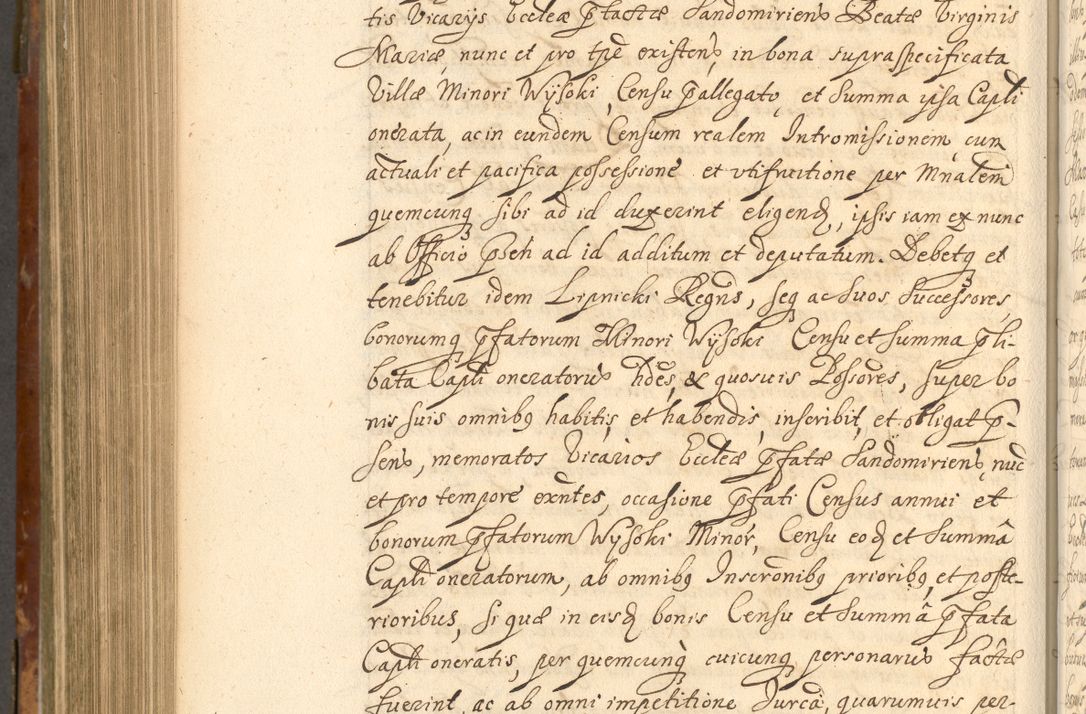 tis Vicarijs Eccleæ p̄factæ Sandomiriens Beatæ Virginis
Mariæ, nunc et pro tp̄e existens, in bona supraspecificata
Villæ Minori Wysoki, Censu p̄allegato, et Summa ipsa Capli
onerata, ac in eundem Censum realem Intromissionem, cum
actuali et pacifica possessione et vtifruitione per Mnalem
quemcunq sibi ad id duxerint eligend, ipsis iam ex nunc
ab Officio p̄seti ad id additum et deputatum. Debetq et
tenebitur idem Lipnicki Regns, seq ac Suos Successores,
bonorumq p̄fatorum Minori Wysoki Censu et Summa p̄li-
bata Capli oneratorū hdes, & quosuis Possores, super bo
nis suis omnibq habitis, et habendis, inscribit, et obligat p̄-
sens, memoratos Vicarios Eccleæ p̄fatæ Sandomiriens, nuc
et pro tempore exntes, occasione p̄fati Census annui et
bonorum p̄fatorum Wysoki Minor, Censu eod et Summâ
Capli oneratorum, ab omnibq Inscronibq prioribq, et poste-
rioribus, si quæ in eisd bonis Censu et Summâ p̄fata
Capli oneratis, per quemcunq cuicunq personarū factæ
fuerint, ac ab omni impetitione Jurca, quarumuis per-